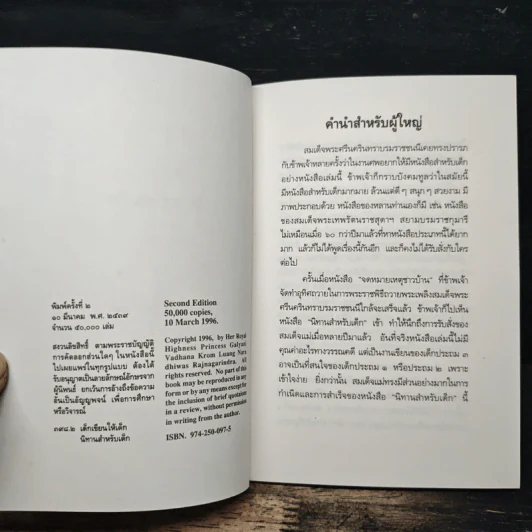 พิมพ์ครั้งที่ ๒
๑๐ มีนาคม พ.ศ. ๒๕๓๙
จำนวน ๕๐,๐๐๐ เล่ม
สงวนลิขสิทธิ์ ตามพระราชบัญญัติ
การคัดลอกส่วนใดๆ ในหนังสือนี้
ไปเผยแพร่ในทุกรูปแบบ ต้องได้
รับอนุญาตเป็นลายลักษณ์อักษรจาก
ผู้นิพนธ์ ยกเว้นการอ้างถึงข้อความ
สั้นเป็นอัญญพจน์ เพื่อการศึกษา
หรือวิจารณ์
๓๙๘.๒ เด็กเขียนให้เด็ก
นิทานสำหรับเด็ก
Second Edition
50,000 copies,
10 March 1996.
Copyright 1996, by Her Royal
Highness Princess Galyani
Vadhana Krom Luang Nara-
dhiwas Rajnagarindra. All
rights reserved. No part of this
book may be reproduced in any
form or by any means except for
the inclusion of brief quotations
in a review, without permission
in writing from the author.
ISBN. 974-250-097-5
คำนำสำหรับผู้ใหญ่
สมเด็จพระศรีนครินทราบรมราชชนนีเคยทรงปรารภ
กับข้าพเจ้าหลายครั้งว่าในงานศพอยากให้มีหนังสือสำหรับเด็ก
อย่างหนังสือเล่มนี้ ข้าพเจ้าก็กราบบังคมทูลว่าในสมัยนี้
มีหนังสือสำหรับเด็กมากมาย ล้วนแต่ดี ๆ สนุก ๆ สวยงาม มี
ภาพประกอบด้วย หนังสือของหลานท่านเองก็มี เช่น หนังสือ
ของสมเด็จพระเทพรัตนราชสุดาฯ สยามบรมราชกุมารี
ไม่เหมือนเมื่อ ๖๐ กว่าปีมาแล้วที่หาหนังสือประเภทนี้ได้ยาก
มาก แล้วก็ไม่ได้พูดเรื่องนี้กันอีก และก็คงไม่ได้รับสั่งกับใคร
ต่อไป
ครั้นเมื่อหนังสือ “จดหมายเหตุชาวบ้าน” ที่ข้าพเจ้า
จัดทำอุทิศถวายในการพระราชพิธีถวายพระเพลิงสมเด็จพระ
ศรีนครินทราบรมราชชนนีใกล้จะเสร็จแล้ว ข้าพเจ้าก็ไปเห็น
หนังสือ “นิทานสำหรับเด็ก” เข้า ทำให้นึกถึงการรับสั่งของ
สมเด็จแม่เมื่อหลายปีมาแล้ว อันที่จริงหนังสือเล่มนี้ไม่มี
คุณค่าอะไรทางวรรณคดี แต่เป็นงานเขียนของเด็กประถม ๓
อาจเป็นที่สนใจของเด็กประถม ๑ หรือประถม ๒ เพราะ
เข้าใจง่าย ยิ่งกว่านั้น สมเด็จแม่ทรงมีส่วนอย่างมากในการ
กำเนิดและการสำเร็จของหนังสือ “นิทานสำหรับเด็ก” นี้